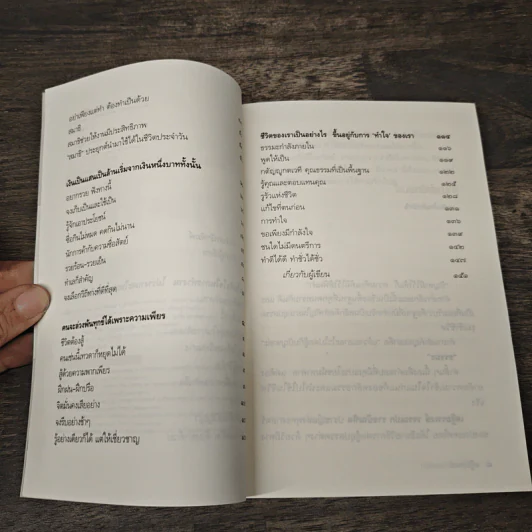 อย่าเพียงแต่ทำ ต้องทำเป็นด้วย
สมาธิ
สมาธิช่วยให้งานมีประสิทธิภาพ
"สมาธิ" ประยุกต์นำมาใช้ได้ในชีวิตประจำวัน
เงินเป็นแสนเป็นล้านเริ่มจากเงินหนึ่งบาททั้งนั้น
อยากรวย ฟังทางนี้
จงเก็บเป็นและใช้เป็น
รู้จักเอาประโยชน์
ซื่อกินไม่หมด คดกินไม่นาน
นักการค้ากับความซื่อสัตย์
รวยร้อน-รวยเย็น
ทำเลก็สำคัญ
จงเลือกวิธีทางที่ดีที่สุด
คนจะล่วงพ้นทุกข์ได้เพราะความเพียร
ชีวิตต้องสู้
คนเช่นนี้เทวดาก็หยุดไม่ได้
สู้ด้วยความพากเพียร
ฝึกฝน-ฝึกปรือ
จิตมั่นคงเสียอย่าง
จงรีบอย่างช้าๆ
รู้อย่างเดียวก็ได้ แต่ให้เชี่ยวชาญ
ชีวิตของเราเป็นอย่างไร ขึ้นอยู่กับการ 'ทำใจ' ของเรา ๑๑๕
ธรรมะกำลังภายใน ๑๑๖
พูดให้เป็น ๑๑๙
กตัญญูกตเวที คุณธรรมที่เป็นพื้นฐาน ๑๒๒
รู้คุณและตอบแทนคุณ ๑๒๕
รู้รัวแห่งชีวิต ๑๒๘
แก้ไขที่ตนก่อน ๑๓๑
การทำใจ ๑๓๖
ขอเพียงมีกำลังใจ ๑๓๙
ชนใดไม่มีดนตรีการ ๑๔๒
ทำดีได้ดี ทำชั่วได้ชั่ว ๑๔๗
เกี่ยวกับผู้เขียน ๑๕๑